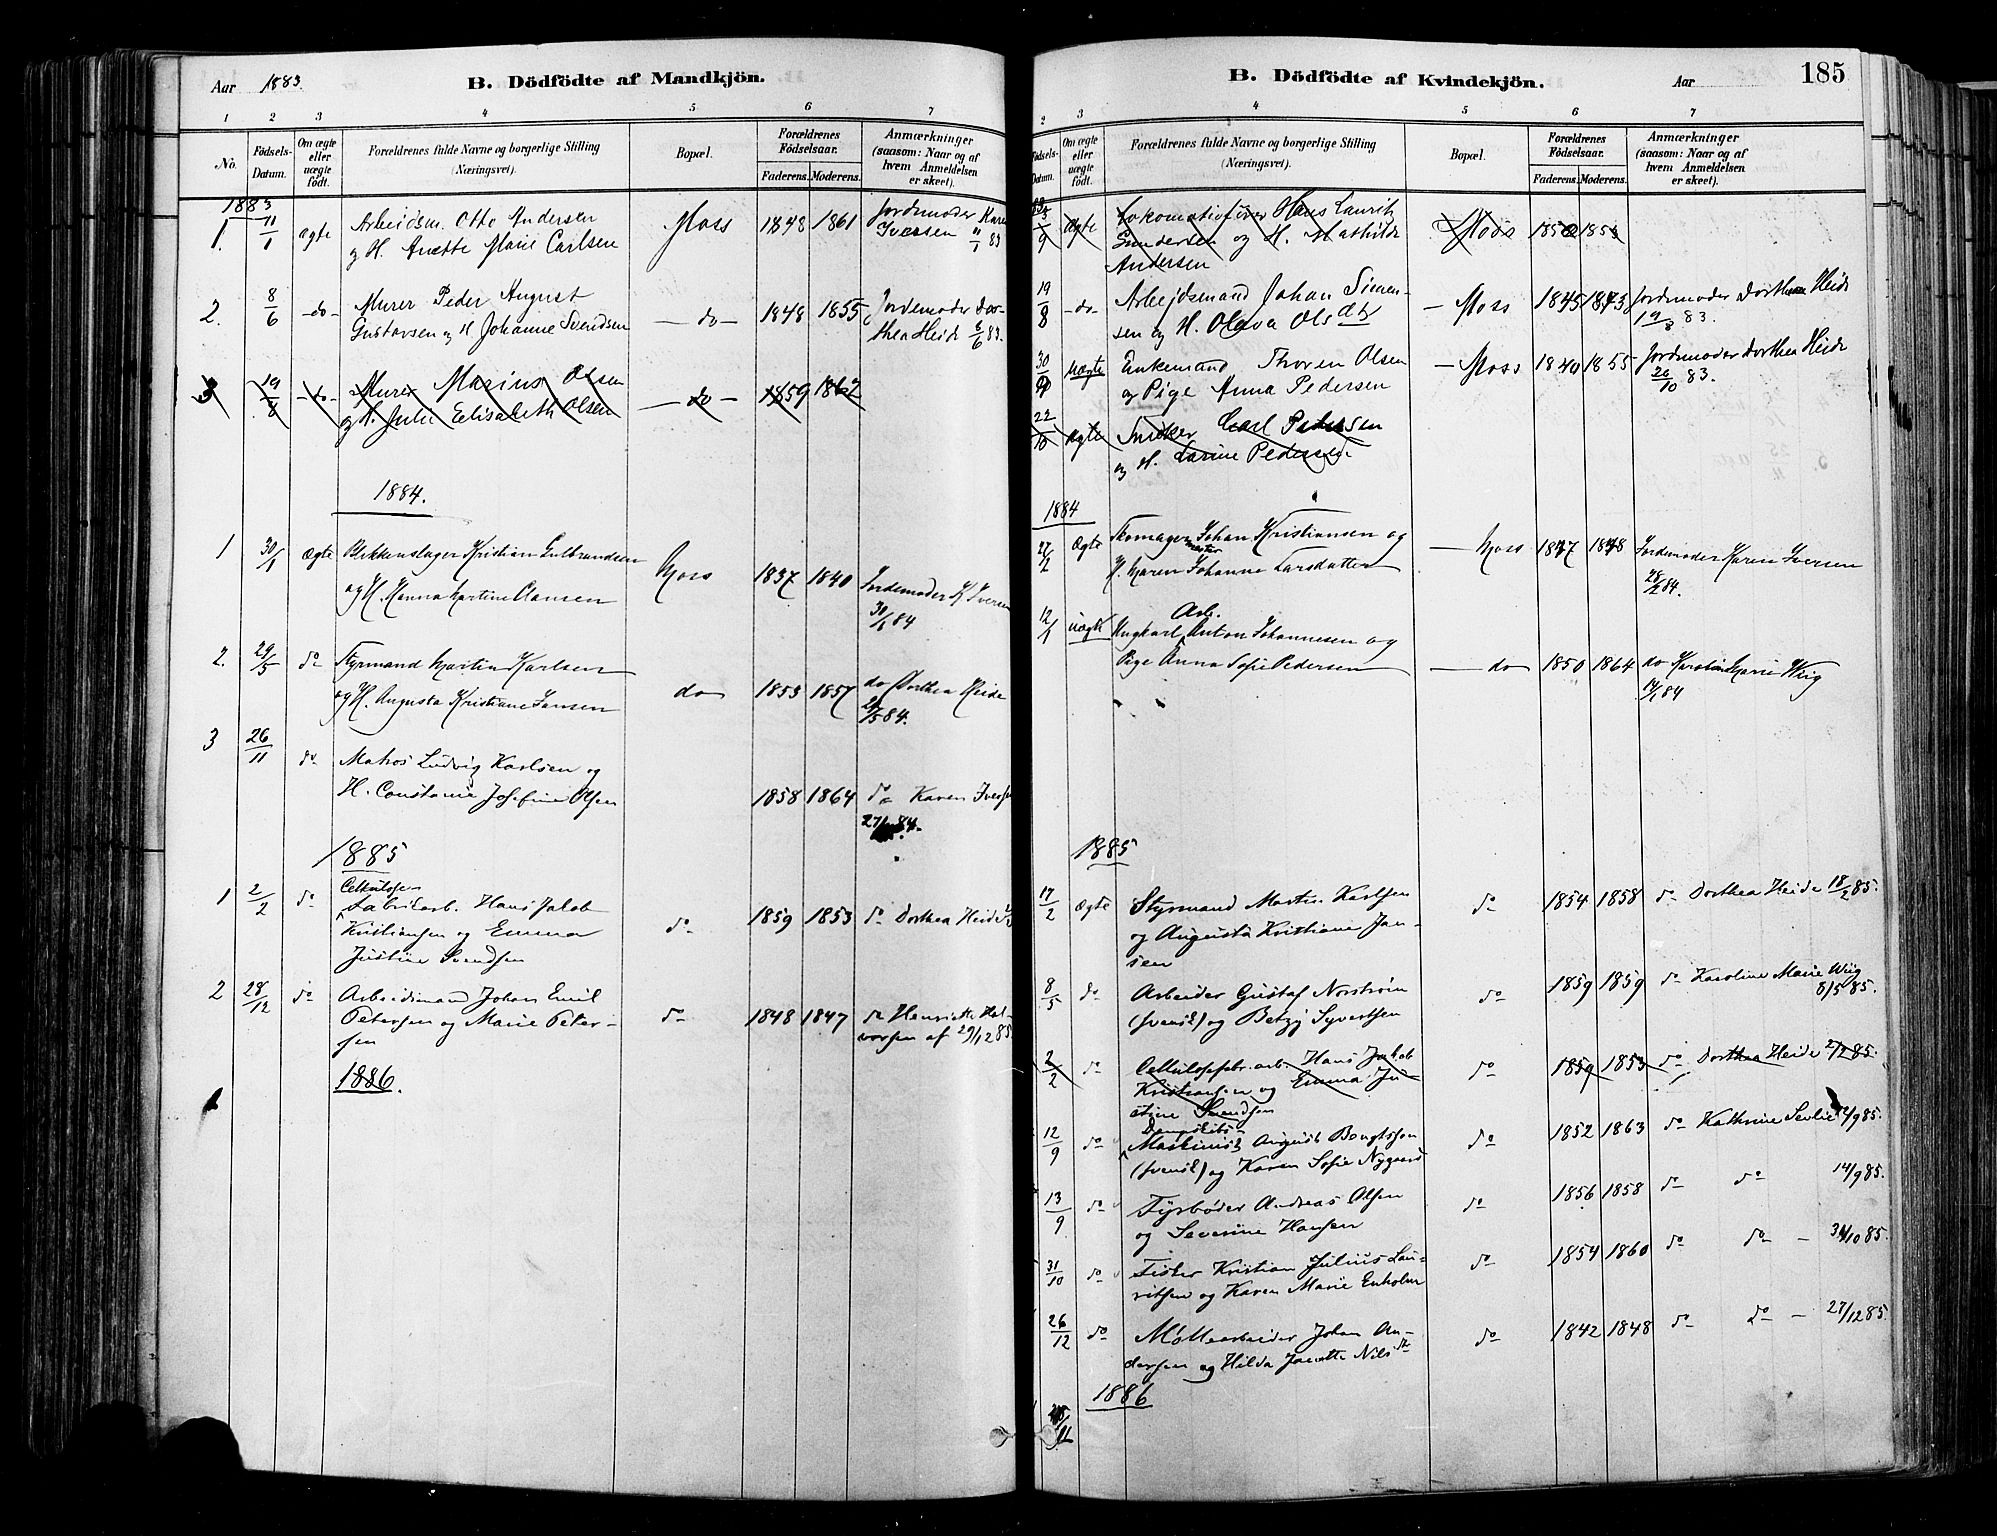 Aar 1883. B. Dödfödte af Mandkjön.
1 2 3 4 5 6 7
No. Födsels-Datum. Om ægte eller uægte født. Forældrenes fulde Navne og borgerlige Stilling (Næringsvei). Bopæl. Forældrenes Födselsaar. Faderens. Moderens. Anmærkninger (saasom: Naar og af hvem Anmeldelsen er skeet).
1883
1. 11/1 ægte Arbeidsm. Otto Andersen Moss 1848 1861 Jordemoder Karen
og H. Anette Marie Carlsen Iversen 11/1 83
2. 8/6 do Murer Peder August do 1848 1855 Jordemoder Dor-
Gustavsen og H. Johanne Svendsen thea Heide 8/6 83.
3 19/8 do Murer Marius Olsen do 1859 1862
og H. Julie Elisabeth Olsen
1884.
1 30/1 Ægte Blikkenslager Kristian Gulbrandsen Moss 1837 1840 Jordemoder K Iversen
og H. Hanna Martine Clausen 30/1 84
2. 29/5 do Styrmand Martin Karlsen do 1853 1857 do Dorthea Heide
og H. Augusta Kristiane Jansen 29/5 84.
3 26/11 do Matros Ludvig Karlsen og
H. Constance Josefine Olsen 1858 1864 do Karen Iversen
27/11 84.
1885
Cellulose-
1 2/2 do Fabrikarb. Hans Jakob do 1859 1853 do Dorthea Heide
Kristiansen og Emma
Justine Svendsen
2 28/12 do Arbeidsmand Johan Emil do 1848 1847 do Henriette Hal-
Petersen og Marie Peter- vorsen af 29/12 85.
sen
1886.
B. Dödfödte af Kvindekjön. Aar 185
2 3 4 5 6 7
Födsels-Datum. Om ægte eller uægte født. Forældrenes fulde Navne og borgerlige Stilling (Næringsvei). Bopæl. Forældrenes Födselsaar. Faderens. Moderens. Anmærkninger (saasom: Naar og af hvem Anmeldelsen er skeet).
83
3/9 ægte Lokomotivfører Hans Laurits Moss 1850 1853
Gundersen og H. Mathilde
Andersen
19/8 do Arbejdsmand Johan Simen- Moss 1845 1843 Jordemoder Dorthea Heide
sen og H. Olava Olsdtr 19/8 83.
30/9 uægte Enkemand Thoren Olsen Moss 1840 1855 Jordemoder Dorthea Heide
og Pige Anna Pedersen 26/10 83.
22/10 ægte Snedker Carl Pedersen
og H. Larine Pedersen
1884
27/2 Ægte Skomagermester Johan Kristiansen og Moss 1847 1848 Jordemoder Karen Iversen
H. Maren Johanne Larsdatter 28/2 84.
Arb.
12/1 uægte Ungkarl Anton Johannesen og
Pige Anna Sofie Pedersen do 1850 1864 do Karoline Marie Wiig
14/1 84
1885
17/2 Ægte Styrmand Martin Karlsen do 1854 1858 do Dorthea Heide 18/2 85.
og Augusta Kristiane Jan-
sen
8/5 do Arbeider Gustaf Norstrøm do 1859 1859 do Karoline Marie Wiig
(svensk) og Betzy Syvertsen 8/5 85.
2/2 do Cellulosefabr. arb. Hans Jakob do 1859 1853 do Dorthea Heide 2/2 85.
Kristiansen og Emma Ju-
stine Svendsen
Dampskibs-
12/9 do Maskinist August Bengtsson do 1852 1863 do Kathrine Sevlie 12/9 85.
(svensk) og Karen Sofie Nygaard
13/9 do Fyrbøder Andreas Olsen do 1856 1858 do do 14/9 85.
og Severine Hansen
31/10 do Fisker Kristian Julius Lau- do 1854 1860 do do 31/10 85.
ritsen og Karen Marie Enholm
26/12 do Møllearbeider Johan An- do 1842 1848 do do 27/12 85.
dersen og Hilda Jacotte Nilsdtr
1886